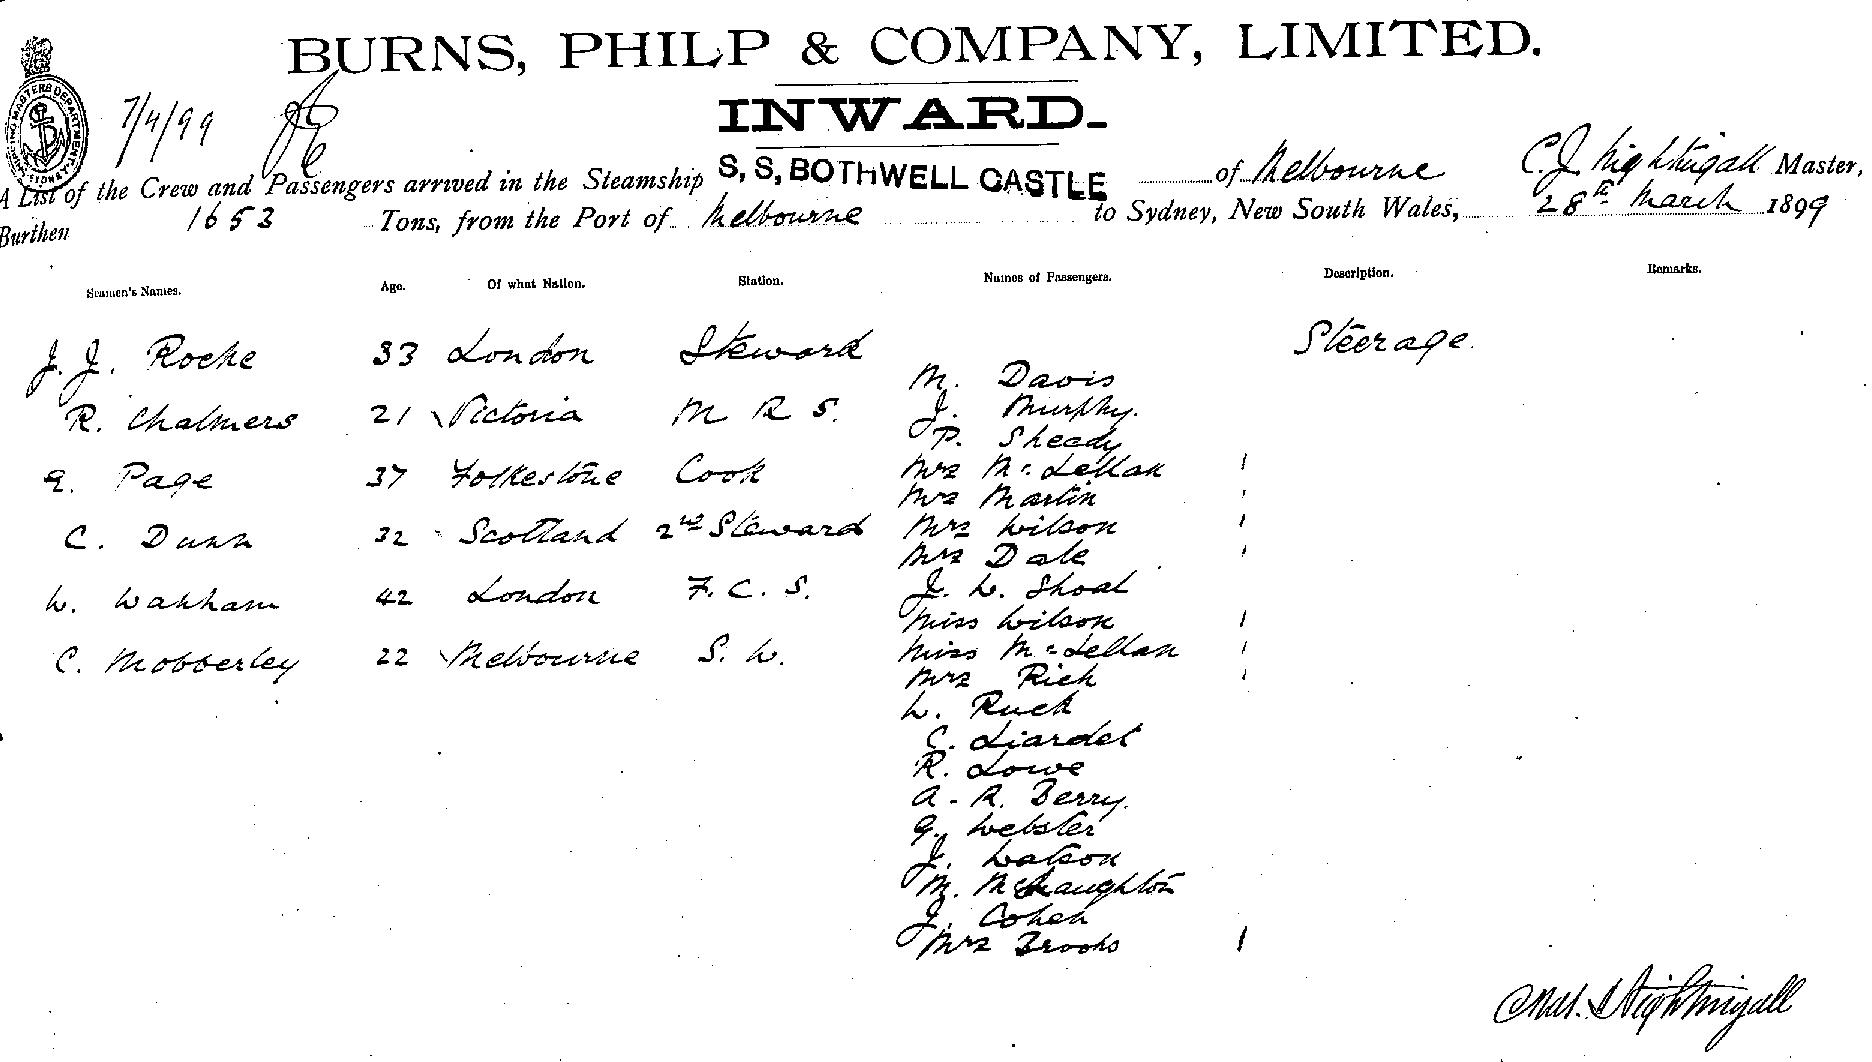 BURNS, PHILP & COMPANY, LIMITED.
INWARD.
7/4/99
SHIPPING MASTERS DEPARTMENT SYDNEY
A List of the Crew and Passengers arrived in the Steamship S, S, BOTHWELL CASTLE of Melbourne C. J. Nightingall Master,
Burthen 1653 Tons, from the Port of Melbourne to Sydney, New South Wales, 28th March 1899
Seamen's Names. Age. Of what Nation. Station. Names of Passengers. Description. Remarks.
J. J. Roche 33 London Steward Steerage.
M. Davis
R. Chalmers 21 Victoria M R S. J. Murphy.
P. Sheady
Page 37 Folkestone Cook Mrs McLellan 1
Mrs Martin 1
C. Dunn 32 Scotland 2nd Steward Mrs Wilson 1
Mrs Dale 1
W. Wakham 42 London F. C. S. J. W. Shoal
Miss Wilson 1
C. Mobberley 22 Melbourne S. W. Miss McLellan 1
Mrs Rich 1
W. Ruck
C. Liardet
R. Lowe
A. R. Berry.
G. Webster
J. Watson
M. McNaughton
J. Cohen
Mrs Brooks 1
Chas. J Nightingall